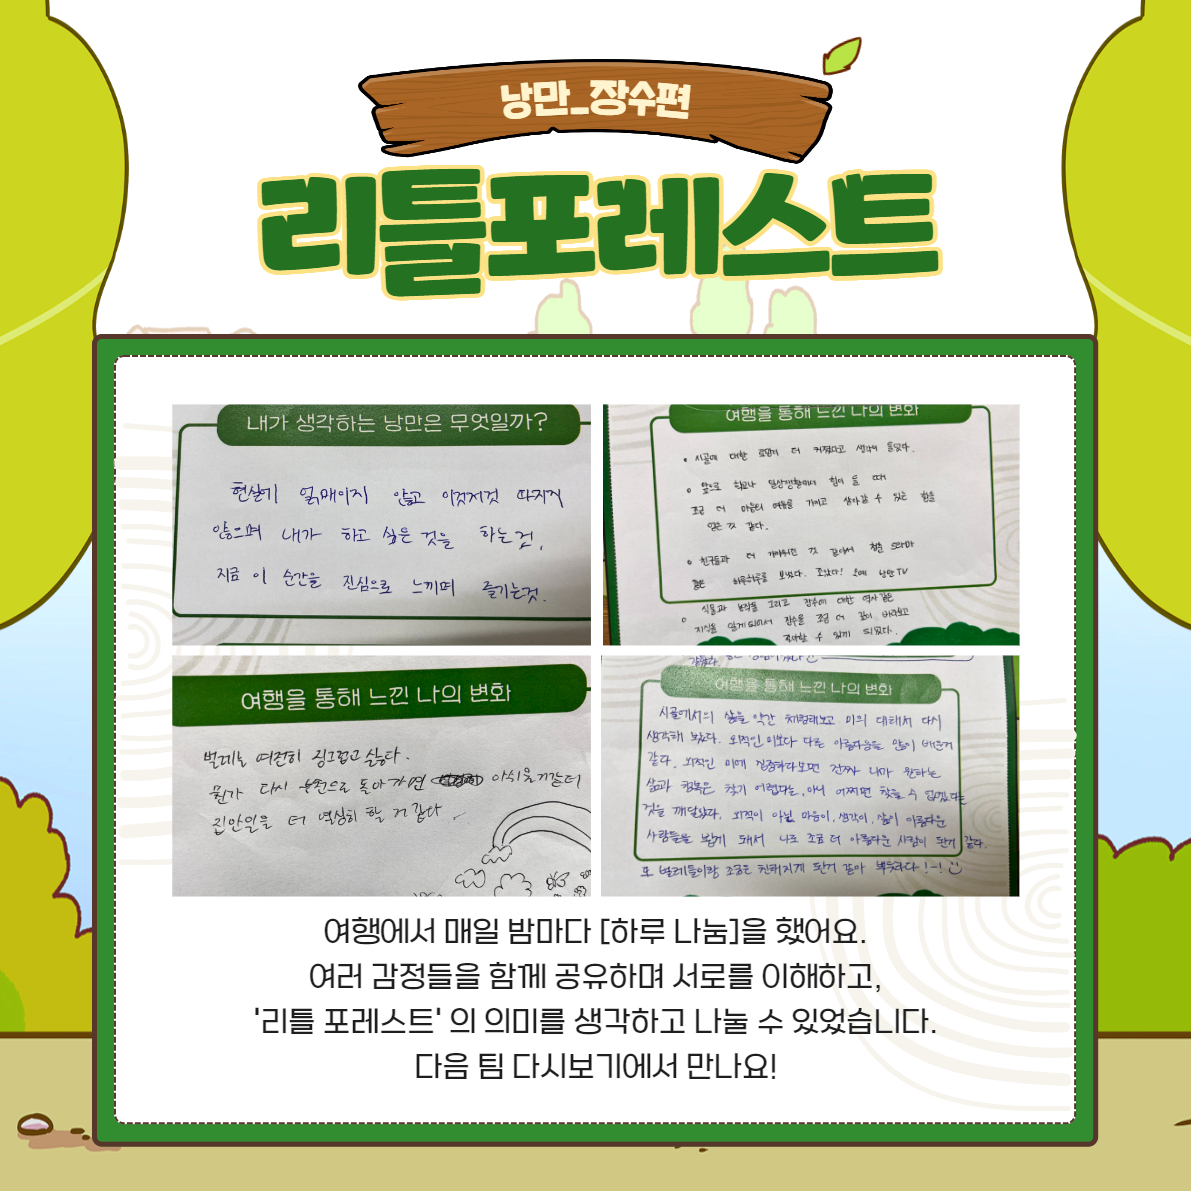 낭만_장수편
리틀포레스트
내가 생각하는 낭만은 무엇일까?
현실에 얽매이지 않고 이것저것 따지지
않으며 내가 하고 싶은 것을 하는것.
지금 이 순간을 진심으로 느끼며 즐기는것.
여행을 통해 느낀 나의 변화
시골에 대한 로망이 더 커졌다고 생각이 들었다.
앞으로 학교나 일상생활에서 힘이 들 때
조금 더 마음의 여유를 가지고 살아갈 수 있는 힘을
얻은 것 같다.
친구들과 더 가까워진 것 같아서 청춘 드라마
같은 하루하루를 보냈다. 좋았다! 오예 낭만TV
식물과 농작물 그리고 장수에 대한 역사같은
지식을 알게되어서 장수를 조금 더 깊이 바라보고
좋아할 수 있게 되었다.
여행을 통해 느낀 나의 변화
벌레는 여전히 징그럽고 싫다.
뭔가 다시 돌아가면 아쉬울거같더
집안일을 더 열심히 할 거 같다.
여행을 통해 느낀 나의 변화
시골에서의 삶을 약간 체험해보고 미의 대해서 다시
생각해 보았다. 외적인 미보다 다른 아름다움을 많이 배운거
같다. 외적인 미에 집중하다보면 진짜 나마 원하는
삶과 행복은 찾기 어렵다는, 아니 어쩌면 찾을 수 없겠다는
것을 깨달았다. 외적이 아닌 마음이, 생각이, 삶이 아름다운
사람들을 보게 돼서 나도 조금 더 아름다운 사람이 된거 같다.
또 벌레들이랑 조금은 친해지게 된거 같아 뿌듯하다!-!
여행에서 매일 밤마다 [하루 나눔]을 했어요.
여러 감정들을 함께 공유하며 서로를 이해하고,
'리틀 포레스트' 의 의미를 생각하고 나눌 수 있었습니다.
다음 팀 다시보기에서 만나요!